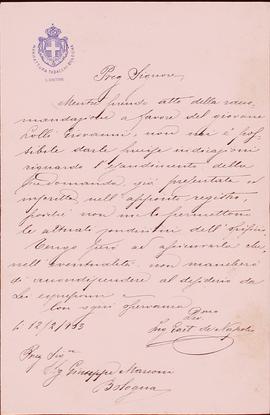 MANIFATTURA TABACCHI BOLOGNA
IL DIRETTORE
Preg. Signore,
Mentre prendo atto della racco-
mandazione a favore del giovane
Lolli Giovanni, non mi è pos-
sibile darle precise indicazioni
riguardo l'esaudimento della
domanda, già presentata ed
inserita nell'apposito registro,
perchè non me lo permettono
le attuali condizioni dell'opificio.
Tengo però ad assicurarla che,
nell'eventualità, non mancherò
di accondiscendere al desiderio da
Lei espressomi.
Con ogni osservanza
Dev.
lì 12/2/933
Ing. Gast. de Napoli
Preg. Sig.
Sig. Giuseppe Marconi
Bologna